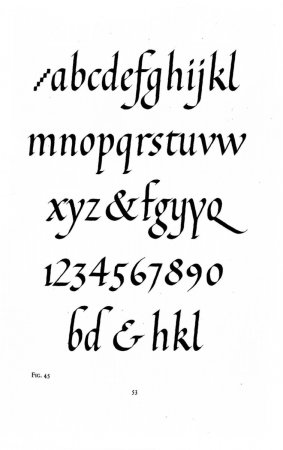 abcdefghijkl
mnopqrstuvw
xyz&fgyyq
1234567890
bd & hkl
FIG. 45
53